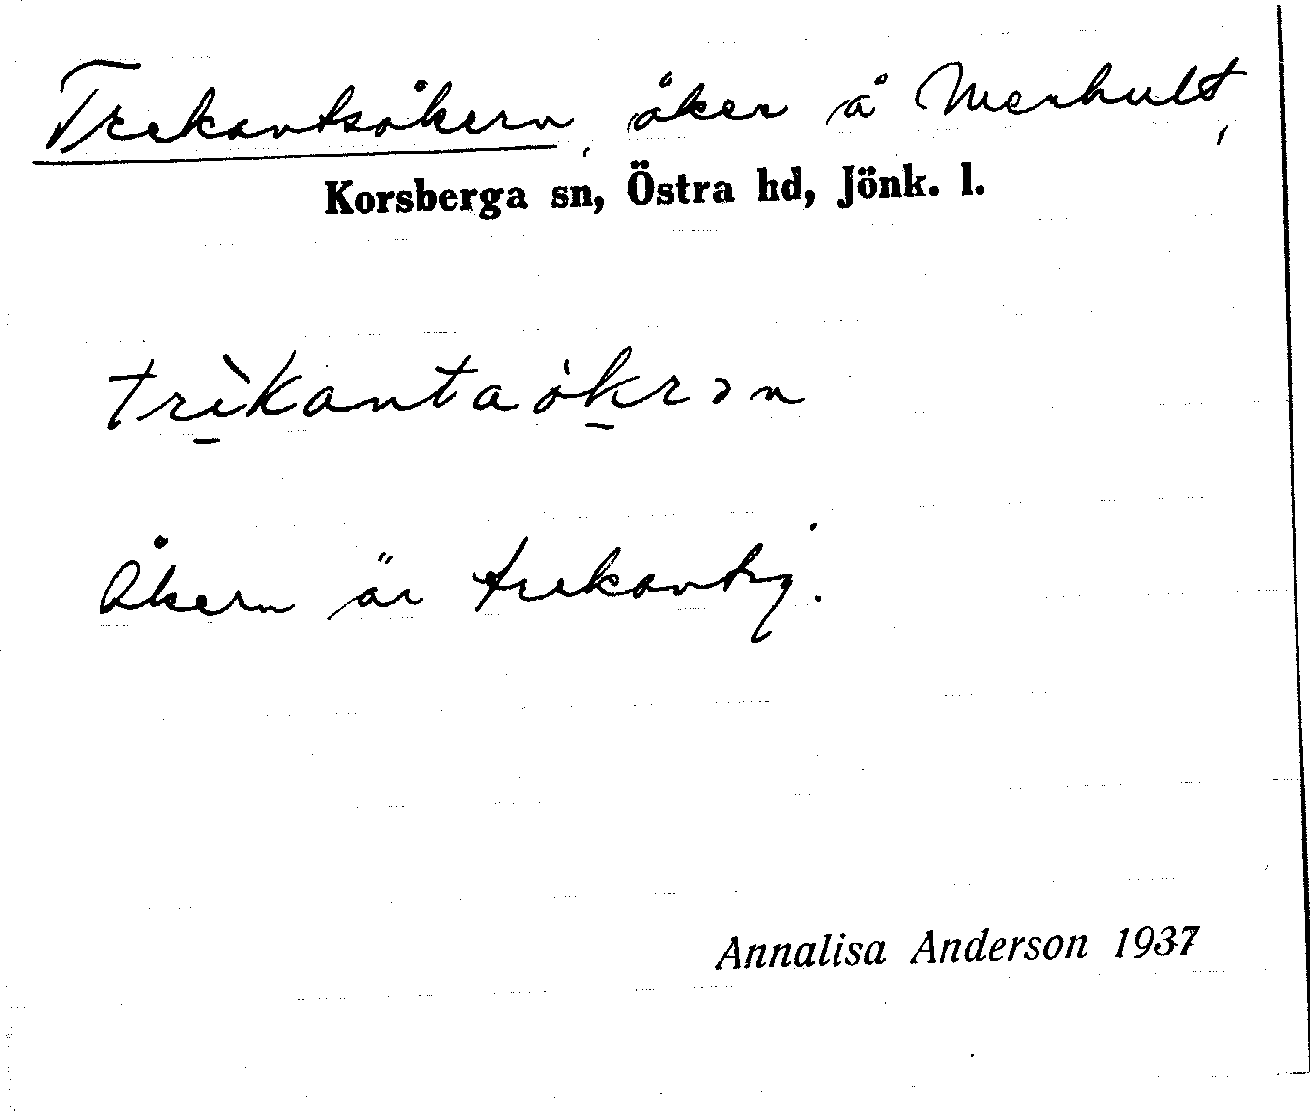 Trekantsåkern, åker å Merhult,
Korsberga sn, Östra hd, Jönk. l.
trìkantaòkrən
Åkern är trekantig.
Annalisa Anderson 1937